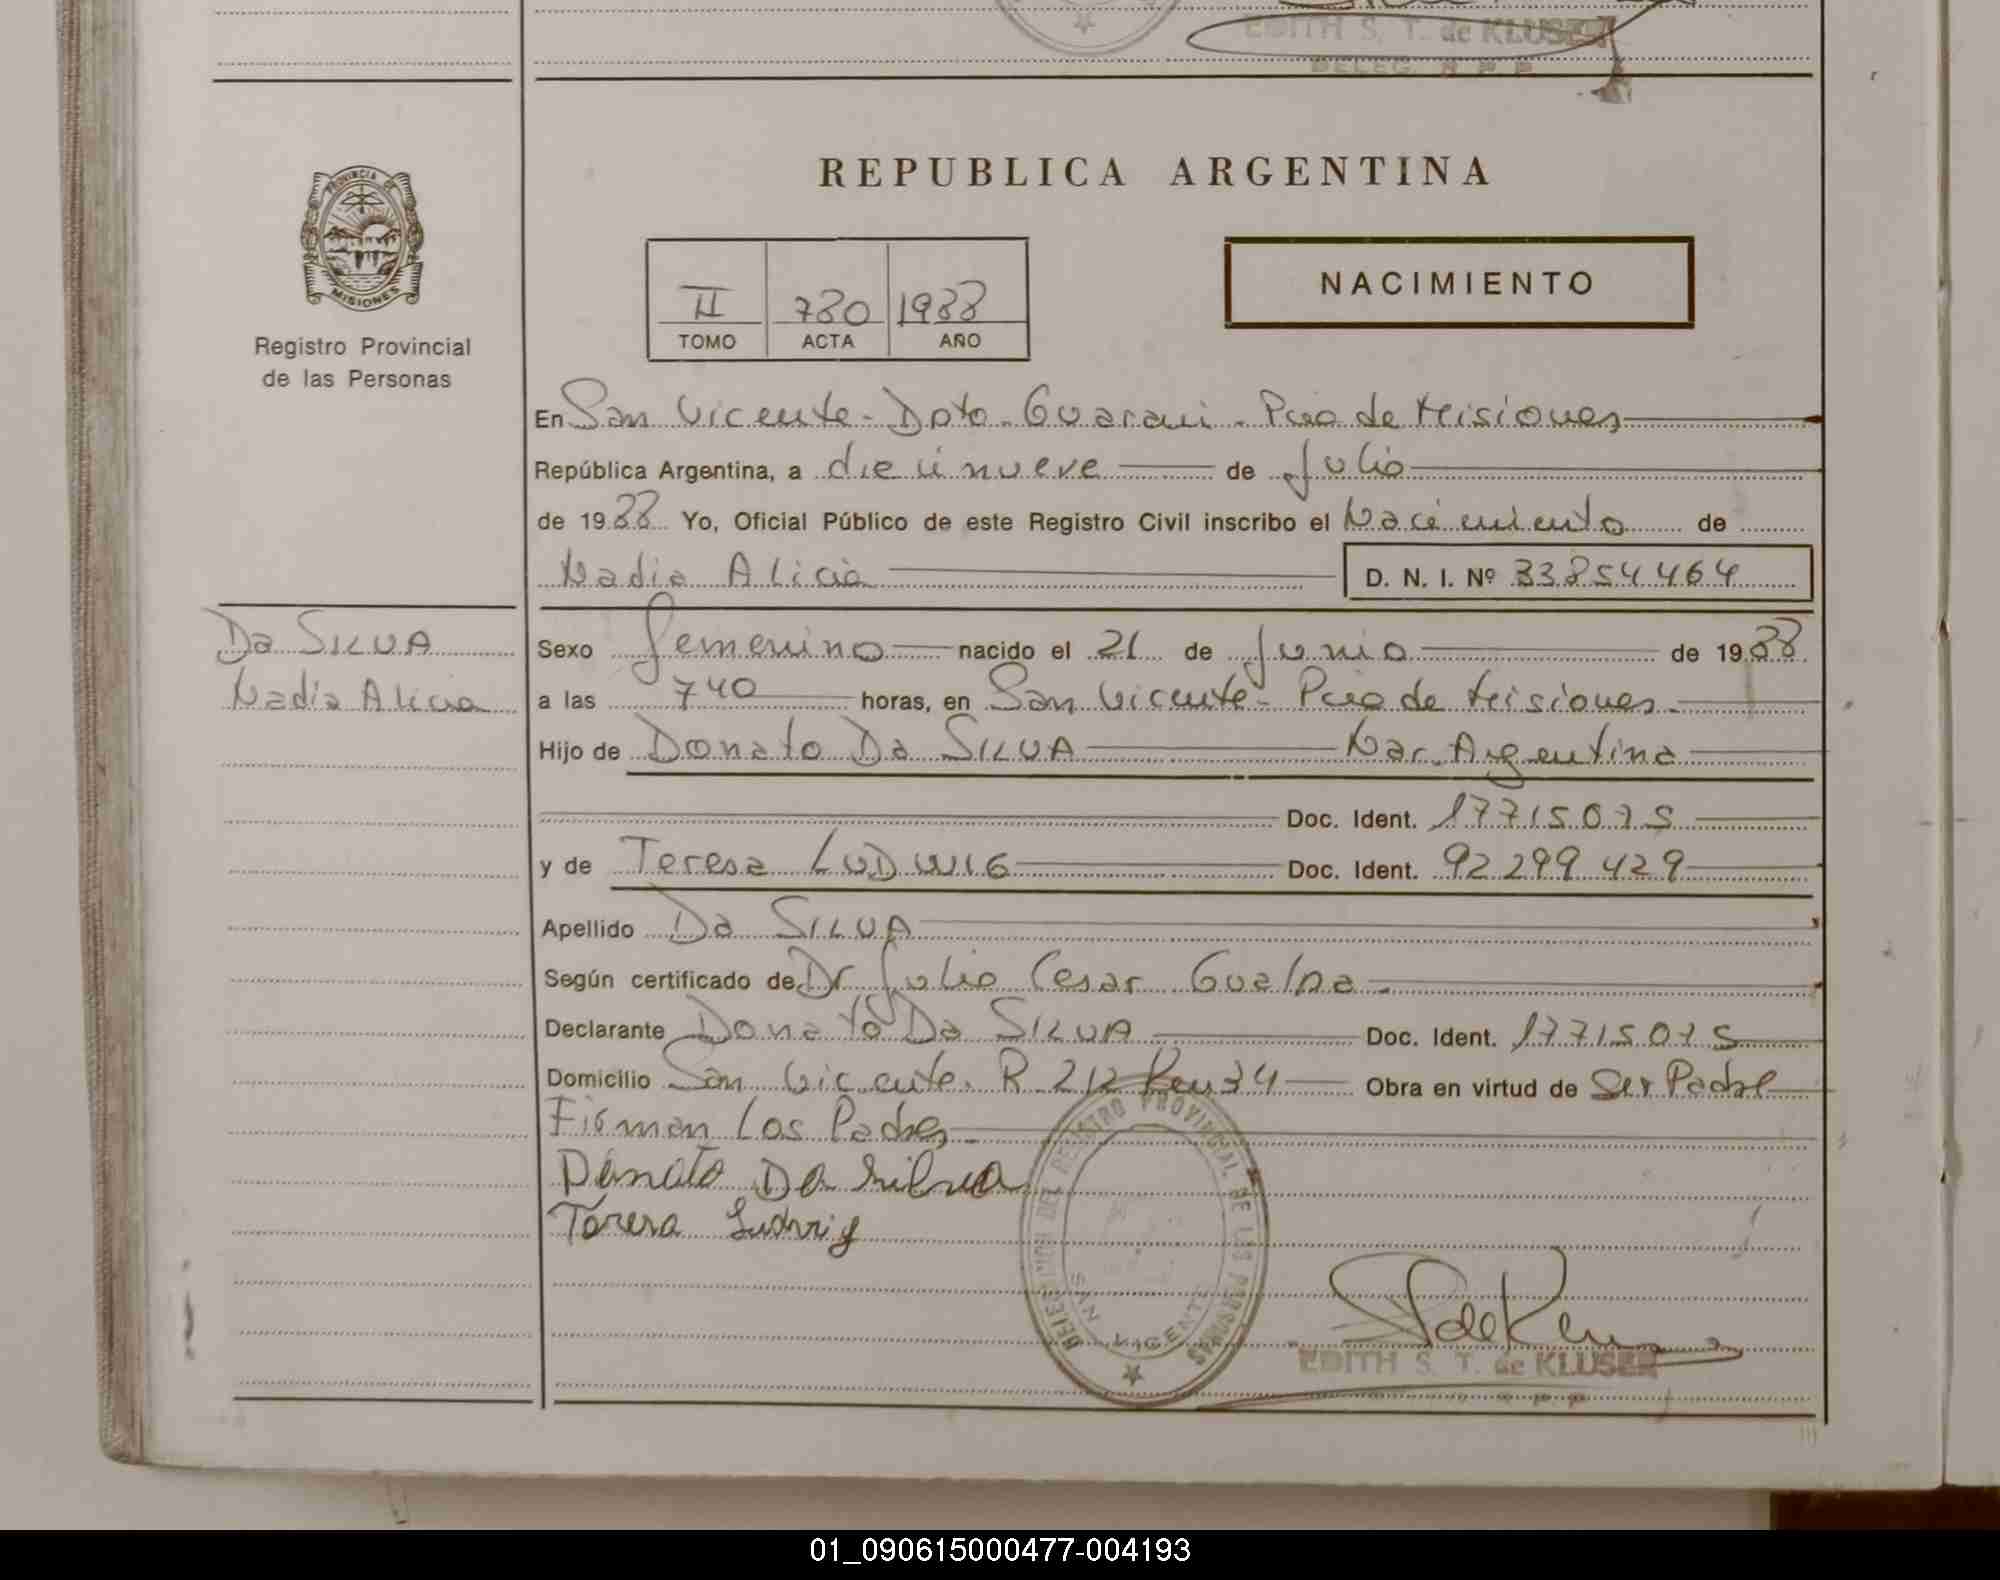 EDITH S. T. de KLUSER
DELEG. R P P
REPUBLICA ARGENTINA
PROVINCIA DE
MISIONES
Registro Provincial
de las Personas
II 780 1988
TOMO ACTA AÑO
NACIMIENTO
En San Vicente - Dpto. Guarani - Pcia de Misiones
República Argentina, a diecinueve de Julio
de 1988 Yo, Oficial Público de este Registro Civil inscribo el Nacimiento de
Nadia Alicia D. N. I. Nº 33854464
Da SILVA
Nadia Alicia
Sexo femenino nacido el 21 de Junio de 1988.
a las 740 horas, en San Vicente - Pcia de Misiones.
Hijo de Donato Da SILVA Nac. Argentina
Doc. Ident. 17715075
y de Teresa LUDWIG Doc. Ident. 92299429
Apellido Da SILVA
Según certificado de Dr Julio Cesar Guelpa.
Declarante Donato Da SILVA Doc. Ident. 17715075
Domicilio San Vicente. R 212 Km 34 Obra en virtud de Ser Padre
Firman Los Padres.
Donato Da Silva
Teresa Ludwig
DELEGACION DEL REGISTRO PROVINCIAL DE LAS PERSONAS
SAN VICENTE
EDITH S. T. de KLUSER
01_090615000477-004193